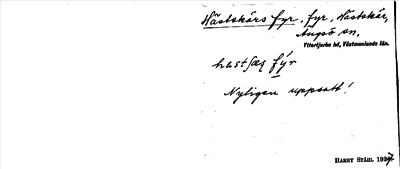 Hästskärs fyr, fyr, Hästskär,
Ängsö sn.
Yttertjurbo hd, Västmanlands län.
hastʃæṣ fýr
Nyligen uppsatt!
HARRY STÅHL 1937